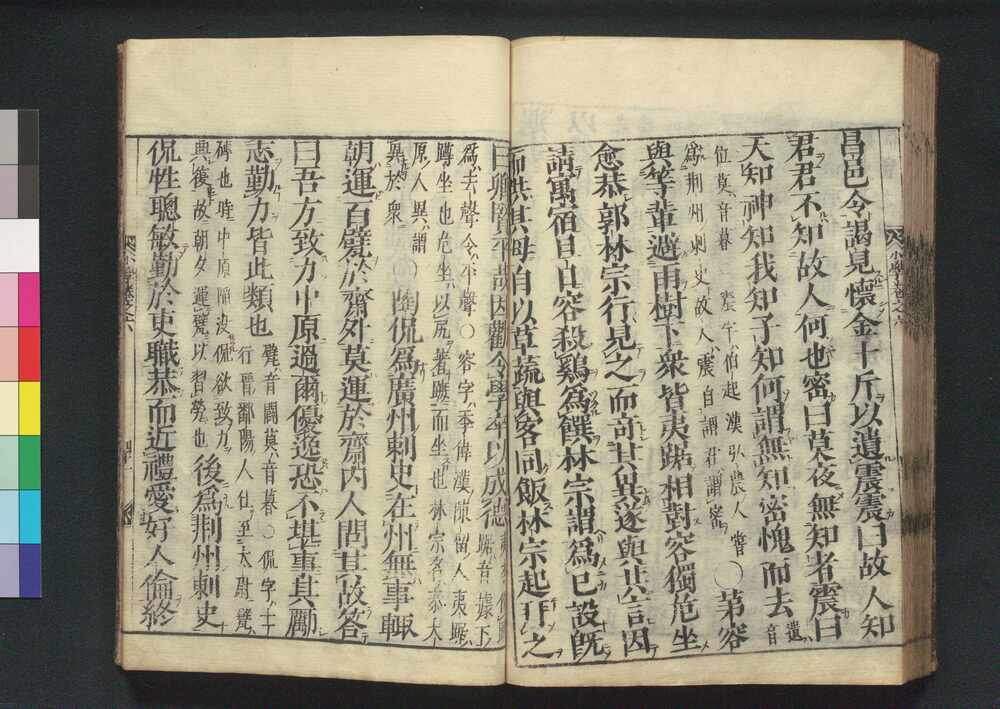 昌邑令謁見懷金十斤以遺震震曰故人知
君君不知故人何也密曰莫夜無知者震曰
天知神知我知子知何謂無知密愧而去遺音
位莫音暮震字伯起漢弘農人嘗
爲荊州刺史故人震自謂君謂密〇茅容
與等輩避雨樹下衆皆夷踞相對容獨危坐
愈恭郭林宗行見之而奇其異遂與共言因
請寓宿旦日容殺鷄爲饌林宗謂爲己設旣
而共其母自以草蔬與客同飯林宗起拜之
曰卿賢乎哉因勸令學卒以成德踞音據下
爲去聲令平聲〇容字季偉漢陳留人夷踞
蹲坐也危坐以尻著蹠而坐也林宗名泰太
原人異謂
異於衆〇陶侃爲廣州刺史在州無事輙
朝運百甓於齋外莫運於齋內人問其故答
曰吾方致力中原過爾優逸恐不堪事其勵
志勤力皆此類也甓音闢莫音暮〇侃字士
行晉鄱陽人仕至太尉甓
磚也時中原陷沒侃欲致力
興復故朝夕運甓以習勞也後爲荊州刺史
侃性聰敏勤於吏職恭而近禮愛好人倫終